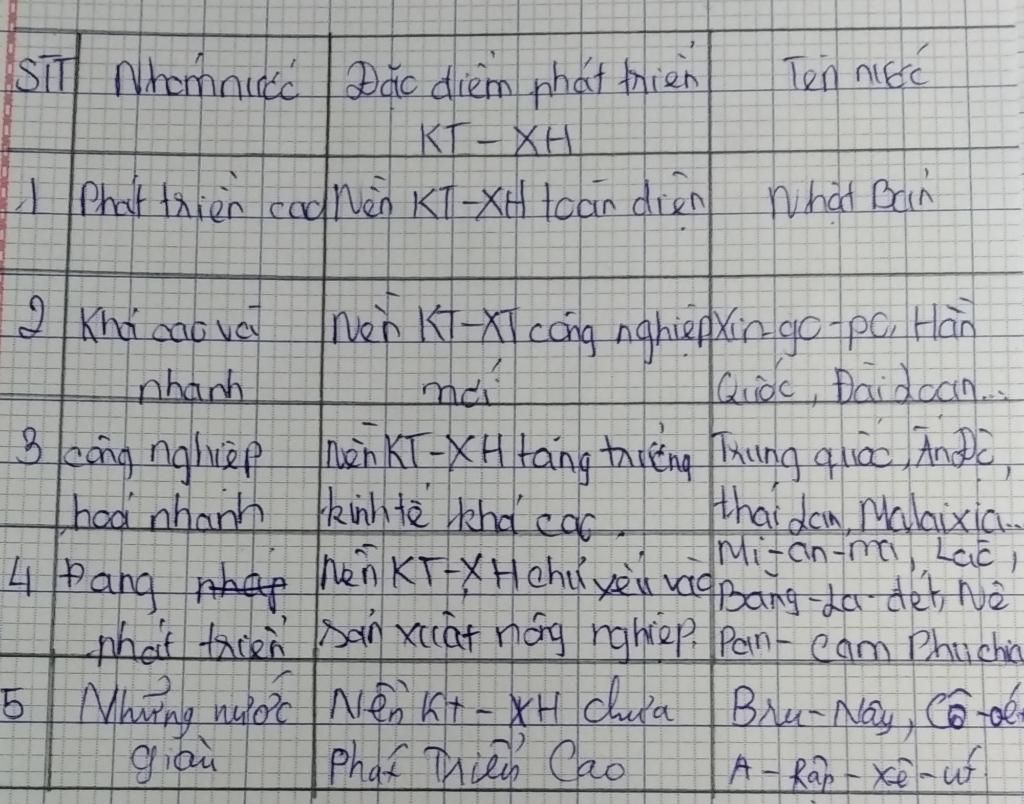 STT Nhóm nước Đặc điểm phát triển Tên nước
KT - XH
1 Phát triển cao Nền KT-XH toàn diện Nhật Bản
2 Khá cao và Nền KT-XT công nghiệp Xin-go-po, Hàn
nhanh mới Quốc, Đài doan...
3 công nghiệp Nền KT-XH tăng trưởng Trung quốc, Ấn Độ,
hoá nhanh kinh tế khá cao. thái dan, Malaixia...
Mi-an-ma, Lào,
4 Đang nhập Nền KT-XH chủ yếu vào Băng-da-dét, Nê
phát triển sản xuất nông nghiệp. Pan- Cam Phuchia
5 Những nước Nền Kt - XH chưa Bru-Nây, Cô-oét
giàu Phát Triển Cao A-Rập-Xê-út